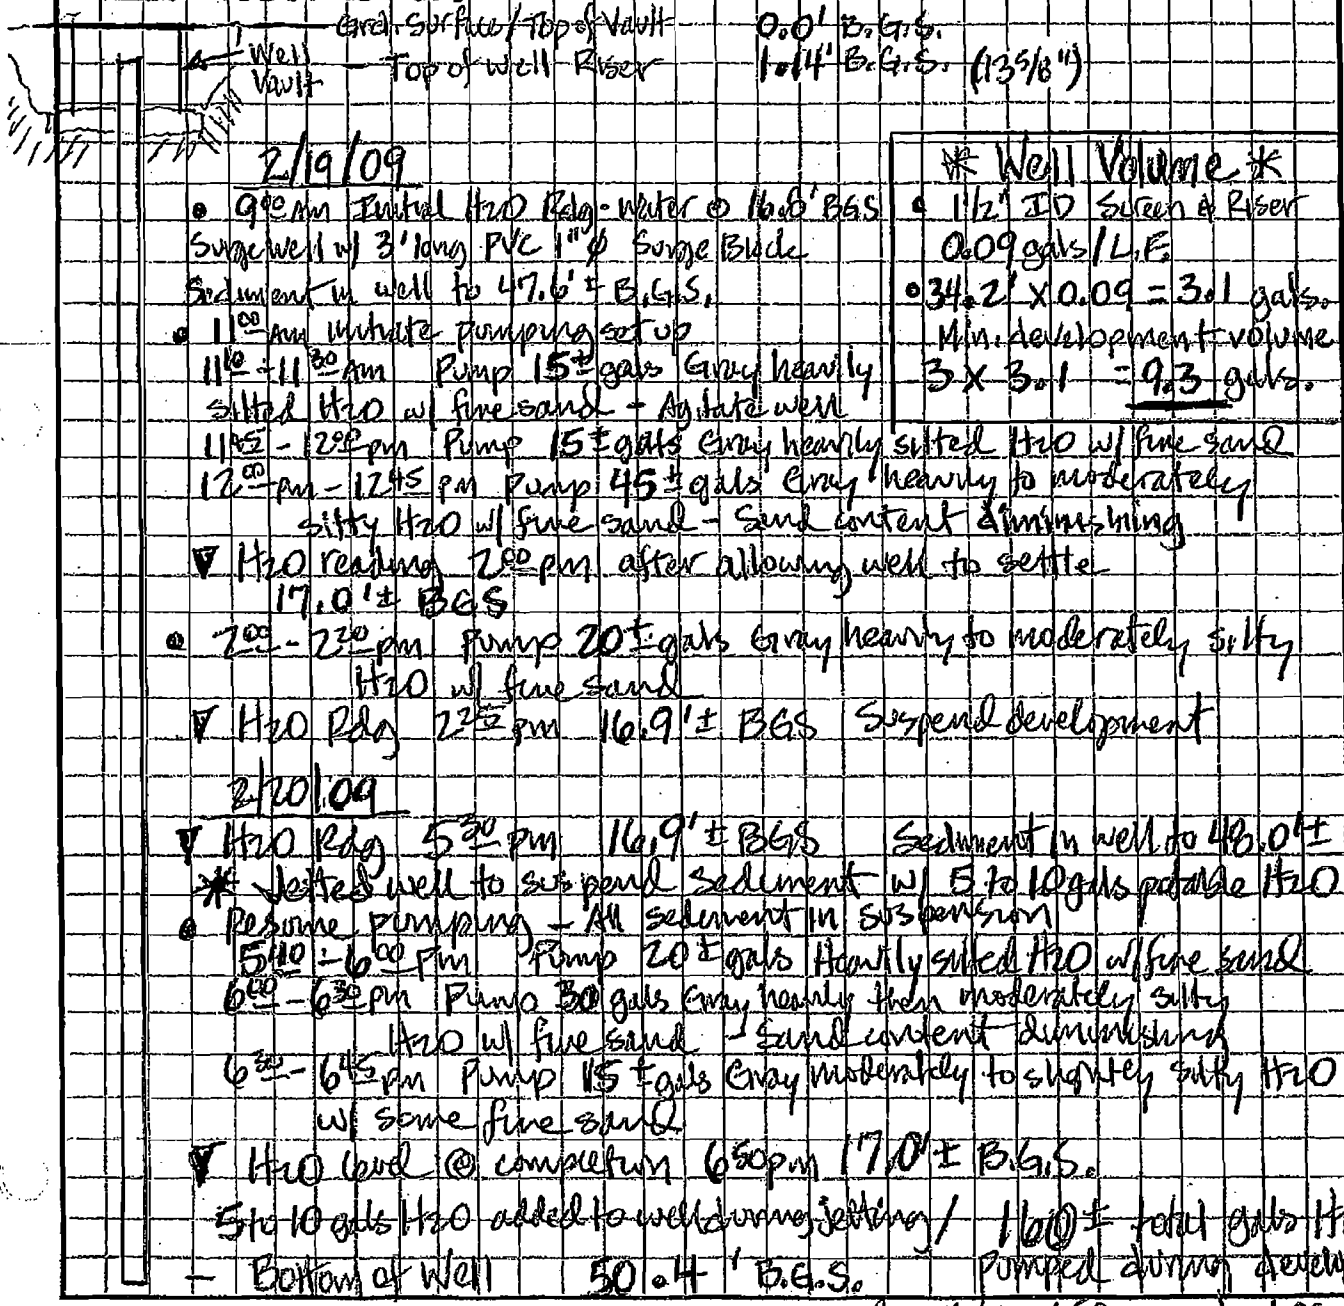 Grd. Surface/Top of Vault 0.0' B.G.S.
Well Vault
- Top of Well Riser 1.14' B.G.S. (13 5/8")
2/19/09
• 9:00 AM Initial H2O Rdg - Water @ 16.8' BGS
Surge well w/ 3' long PVC 1" ø Surge Block
Sediment in well to 47.6' ± B.G.S.
• 11:00 AM initiate pumping set up
11:10 - 11:30 AM Pump 15± gals Gray heavily
silted H2O w/ fine sand - Agitate well
* Well Volume *
• 1 1/2" ID Screen & Riser
0.09 gals/L.F.
• 34.2' x 0.09 = 3.1 gals.
Min. development volume
3 x 3.1 = 9.3 gals.
11:45 - 12:00 pm Pump 15± gals Gray heavily silted H2O w/ fine sand
12:00 pm - 12:45 pm Pump 45± gals Gray heavily to moderately
silty H2O w/ fine sand - Sand content diminishing
▼ H2O reading 2:00 pm after allowing well to settle
17.0'± BGS
• 2:00 - 2:20 pm Pump 20± gals Gray heavy to moderately silty
H2O w/ fine sand
▼ H2O Rdg pm 16.9'± BGS Suspend development
2/20/09
▼ H2O Rdg 5:30 pm 16.9'± BGS Sediment in well to 48.0'±
* Jetted well to suspend sediment w/ 5 to 10 gals potable H2O
• Resume pumping - All sediment in suspension
5:40 - 6:00 pm Pump 20± gals Heavily silted H2O w/ fine sand
6:00 - 6:30 pm Pump 30 gals Gray heavily then moderately silty
H2O w/ fine sand - Sand content diminishing
6:30 - 6:45 pm Pump 15± gals Gray moderately to slightly silty H2O
w/ some fine sand
▼ H2O level @ completion 6:50 pm 17.0'± B.G.S.
5 to 10 gals H2O added to well during jetting / 160± total gals H
Pumped during develo
- Bottom of Well 50.4' B.G.S.